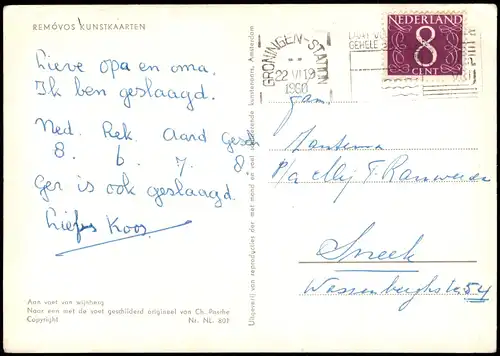 REMOVOS KUNSTKAARTEN
Lieve opa en oma.
Ik ben geslaagd.
Ned. Rek. Aard Gesch
8. 6. 7. 8
Ger is ook geslaagd.
Liefs Koos.
Aan voet van wijnberg
Naar een met de voet geschilderd origineel van Ch. Pasche
Copyright Nr. NL. 801
Uitgeverij van reproducties der met mond en voet schilderende kunstenaars, Amsterdam
GRONINGEN-STATION
22 VI 19
1960
GEHELE
NEDERLAND
8
CENT
Fam.
P/a
Sneek
54